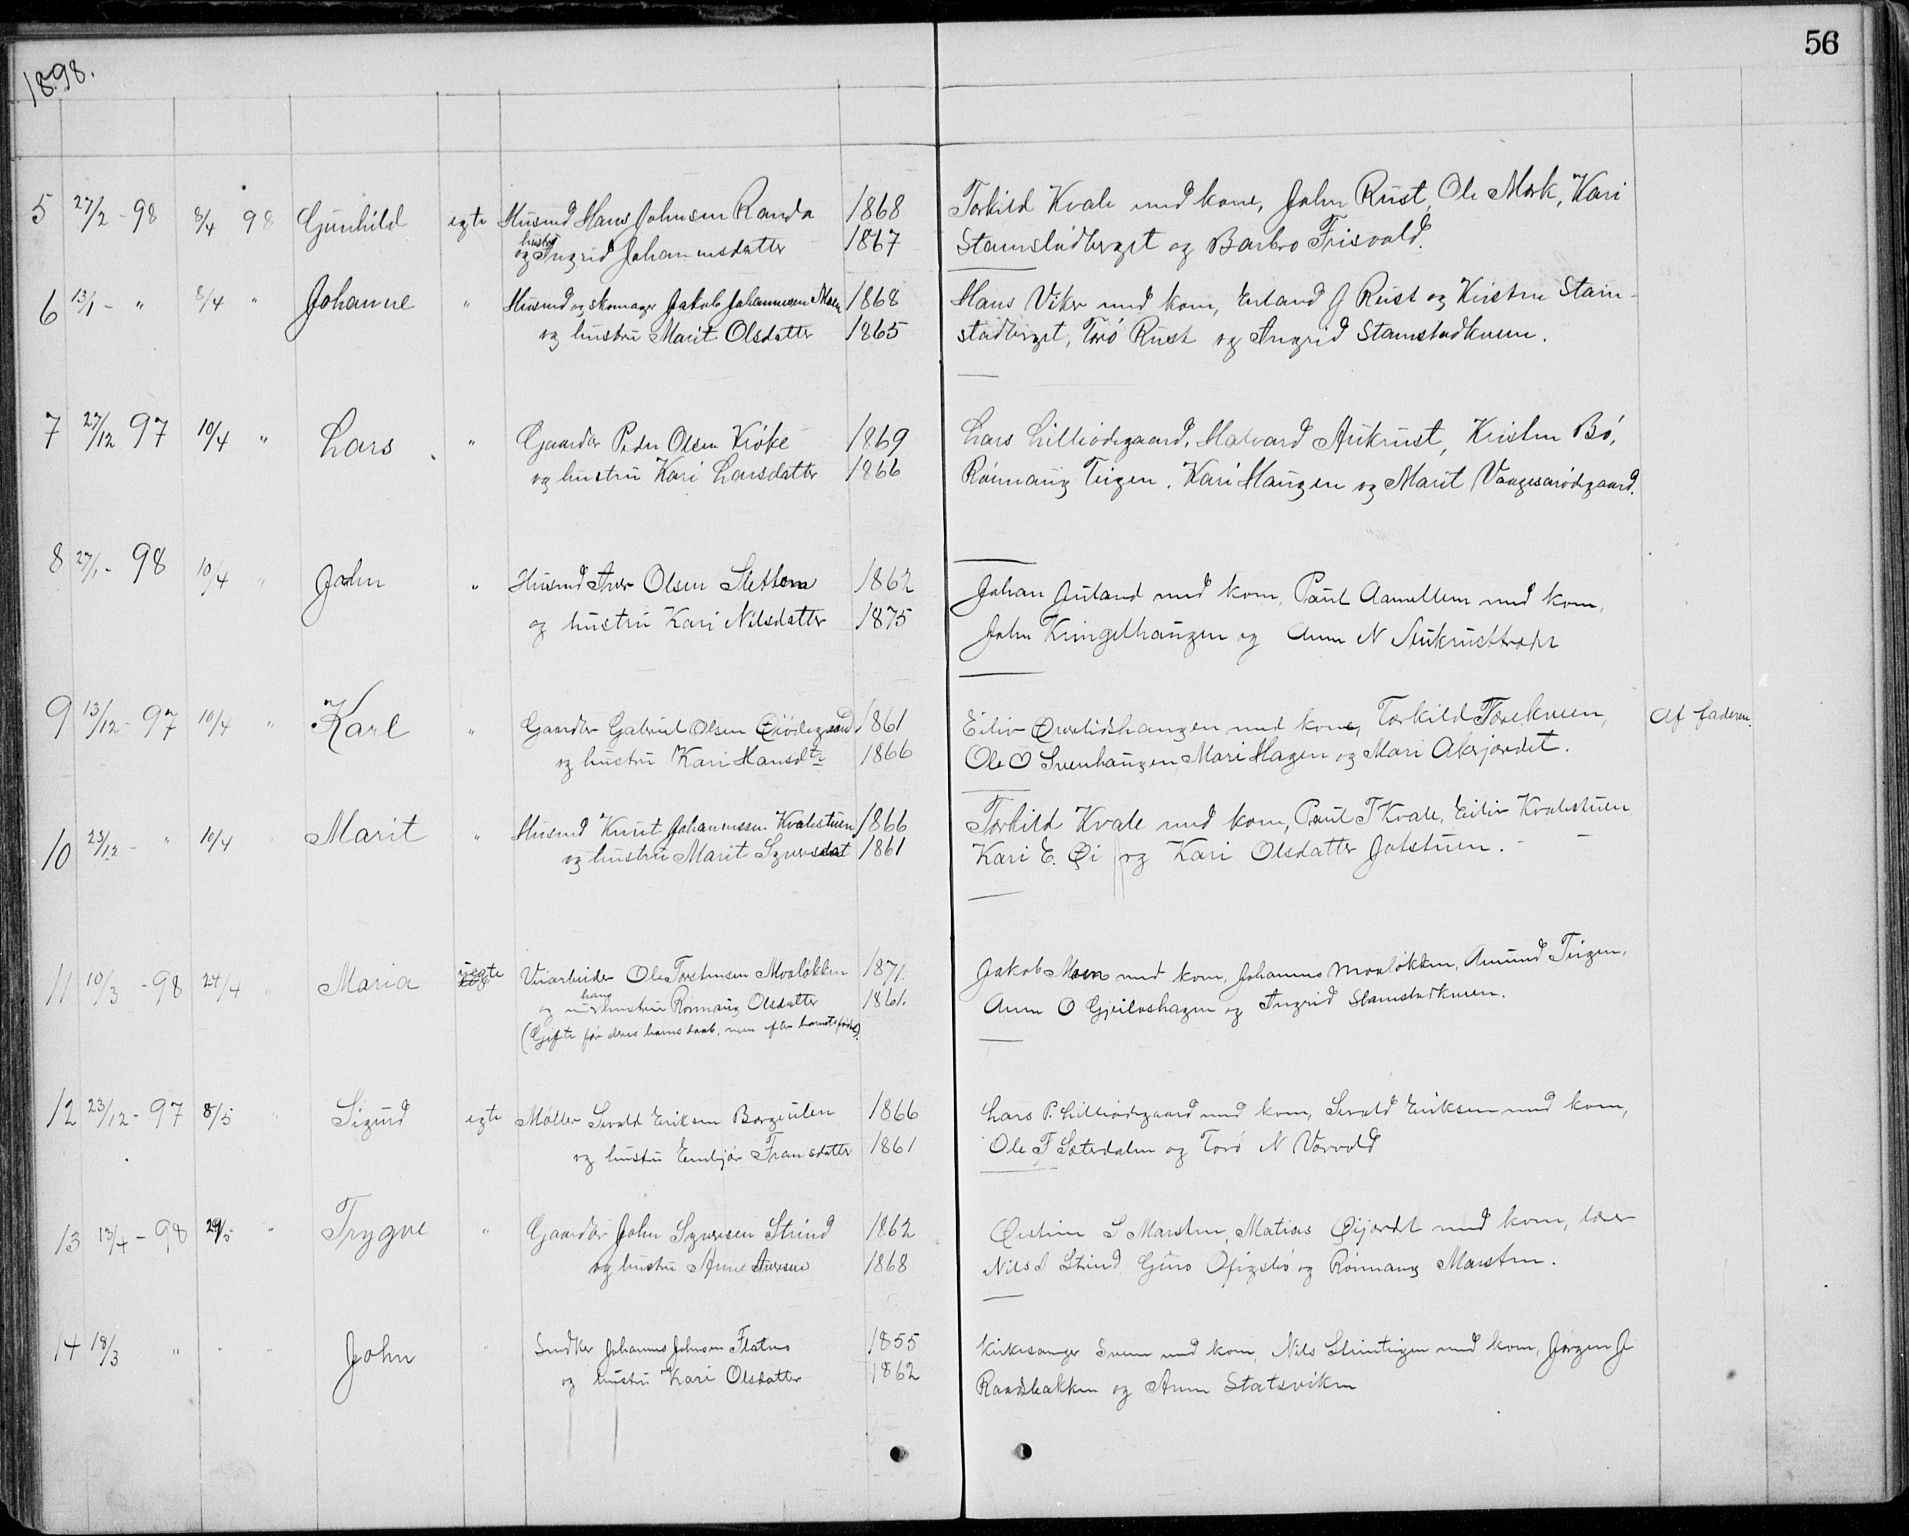 56
1898.
5 27/2 - 98 8/4 98 Gunhild egte Husmd Hans Johnsen Randa 1868 Torkild Kvale med kone, John Rust, Ole Mork, Kari
og hustru Ingrid Johannesdatter 1867 Stamstadberget og Barbro Frisvold.
6 13/1 - " 8/4 " Johanne " Husmd og skomager Jakob Johannesen Moen 1868 Hans Viker med kone, Erland J Rust og Kirstine Stam-
og hustru Marit Olsdatter 1865 stadberget, Torø Rust og Ingrid Stamstadkneen.
7 27/12 97 10/4 " Lars " Gaardbr Peder Olsen Krøke 1869 Lars Lilleødegaard, Halvard Aukrust, Kristen Bø,
og hustru Kari Larsdatter 1866 Rønnaug Teigen, Kari Haugen og Marit Vaagesarødegaard.
8 27/1 - 98 10/4 " John " Husmd Iver Olsen Sletten 1862 Johan Juland med kone, Paul Aamellem med kone,
og hustru Kari Nilsdatter 1875 John Kringelhaugen og Anne N Aukrusttrædet
9 13/12 - 97 10/4 " Karl " Gaardbr Gabriel Olsen Øiødegaard 1861 Eiliv Øverlidshaugen med kone, Torkild Torekveen, Af faderen.
og hustru Kari Hansdtr 1866 Ole O Svenhaugen, Mari Hagen og Mari Akerjordet.
10 23/12 - " 10/4 Marit " Husmd Knut Johannessen Kvalestuen 1866 Torkild Kvale med kone, Paul T Kvale, Eiliv Kvalestuen
og hustru Marit Syversdat 1861 Kari E. Øi og Kari Olsdatter Jotstuen. -
11 10/3 - 98 24/4 " Maria uegte Veiarbeider Ole Torstensen Moaløkken 1871. Jakob Moen med kone, Johannes Moaløkken, Amund Teigen,
og hans hustru Rønnaug Olsdatter 1861. Anne O Gjeiloshagen og Ingrid Stamstadkneen.
(Gifte før deres barns daab, men efter barnets fødsel).
12 23/12 - 97 8/5 " Sigurd egte Møller Sevald Eriksen Borgeulen 1866 Lars P. Lilleødegaard med kone, Sevald Eriksen med kone,
og hustru Embjør Fransdatter 1861 Ole F Sæterdalen og Torø N Vorvold
13 13/4 - 98 29/5 " Trygve " Gaardbr John Syversen Strind 1862 Østein S Marsten, Matias Øijordet med kone, lærer
og hustru Anne Iversen 1868 Nils S Strind Guro Ofigsbø og Rønnaug Marsten.
14 18/3 " " " John " Snedker Johannes Johnsen Flatmo 1855 Kirkesanger Sveen med kone, Nils Slimtingen med kone, Jørgen J
og hustru Kari Olsdatter 1862 Randsbakken og Anne Statsviken